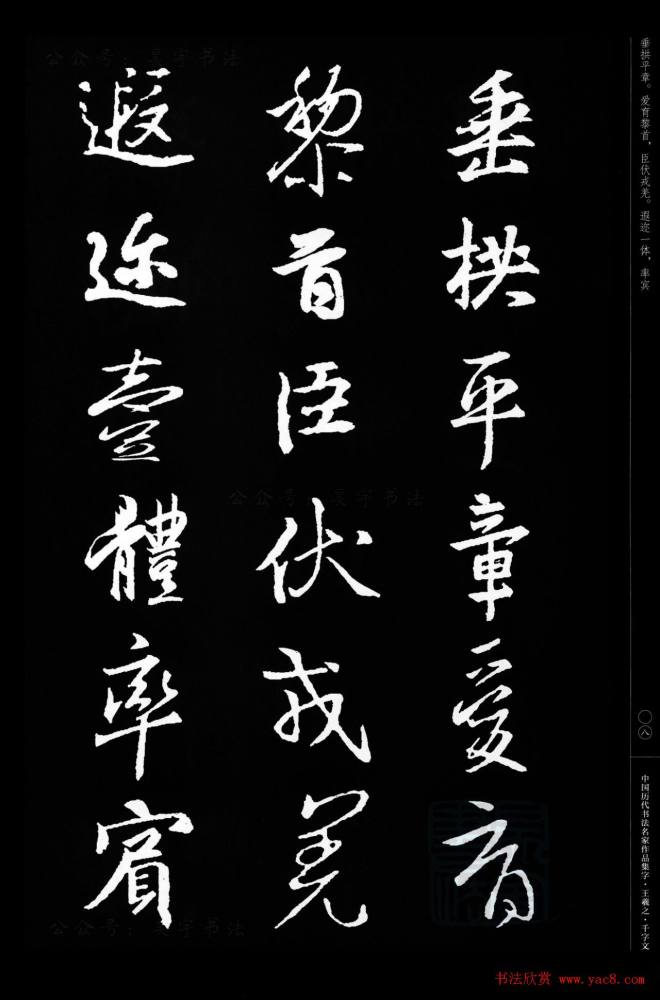 垂拱平章爱育
黎首臣伏戎羌
遐迩壹體率賓
垂拱平章。爱育黎首，臣伏戎羌。遐迩一体，率宾
〇八
中国历代书法名家作品集字·王羲之·千字文
公众号：昊宇书法
公众号：昊宇书法
公众号：昊宇书法
书法欣赏 www.yac8.com